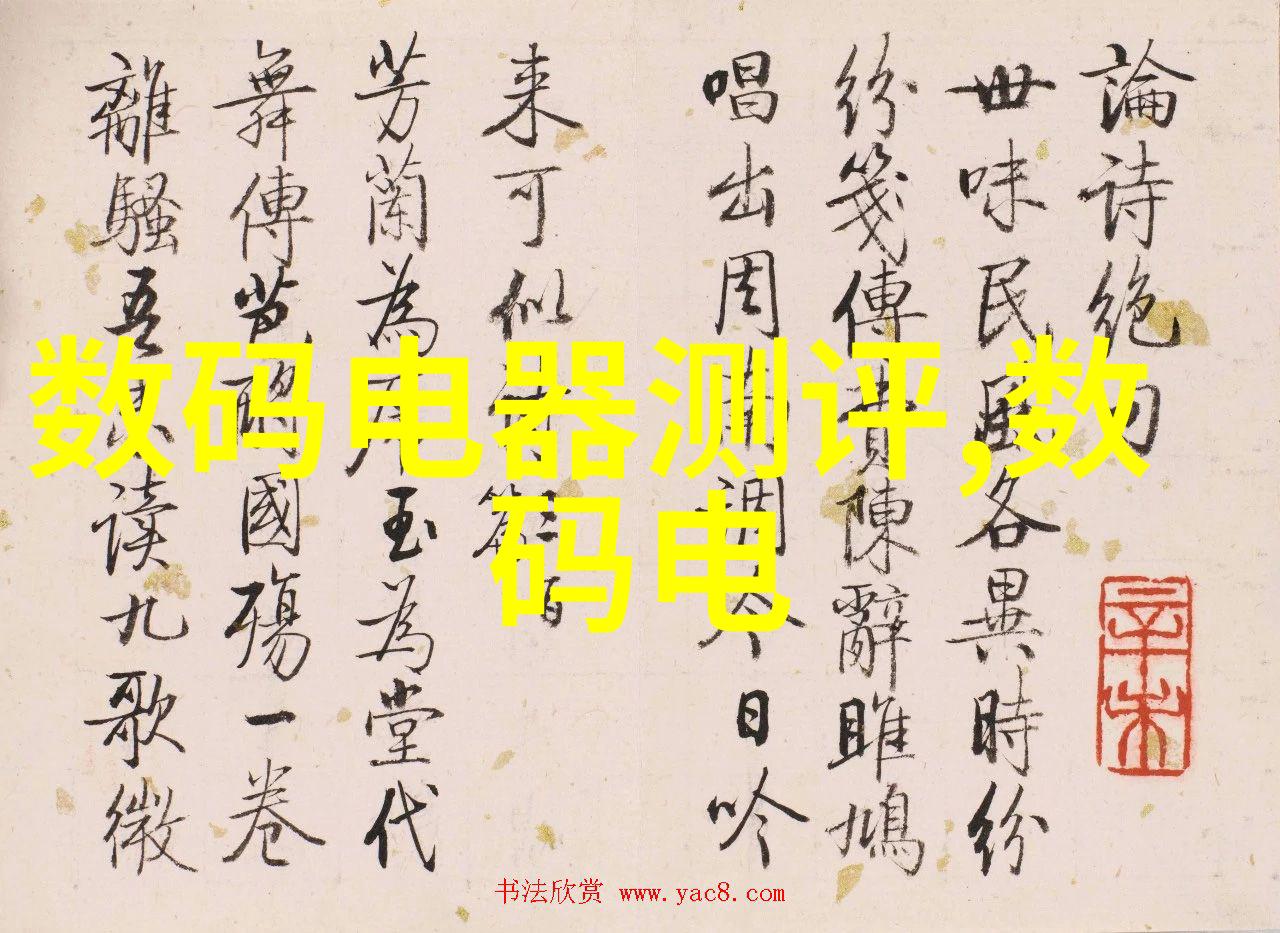 論诗绝句
世味民風各異時紛
紛箋傳費陳辭雎鳩
唱出周南調今日吟
来可似
芳蘭為席玉為堂代
舞傳芭酹國殤一卷
離騷吾读九歌微
辛未
数码电器测评,数
码电
书法欣赏 www.yac8.com